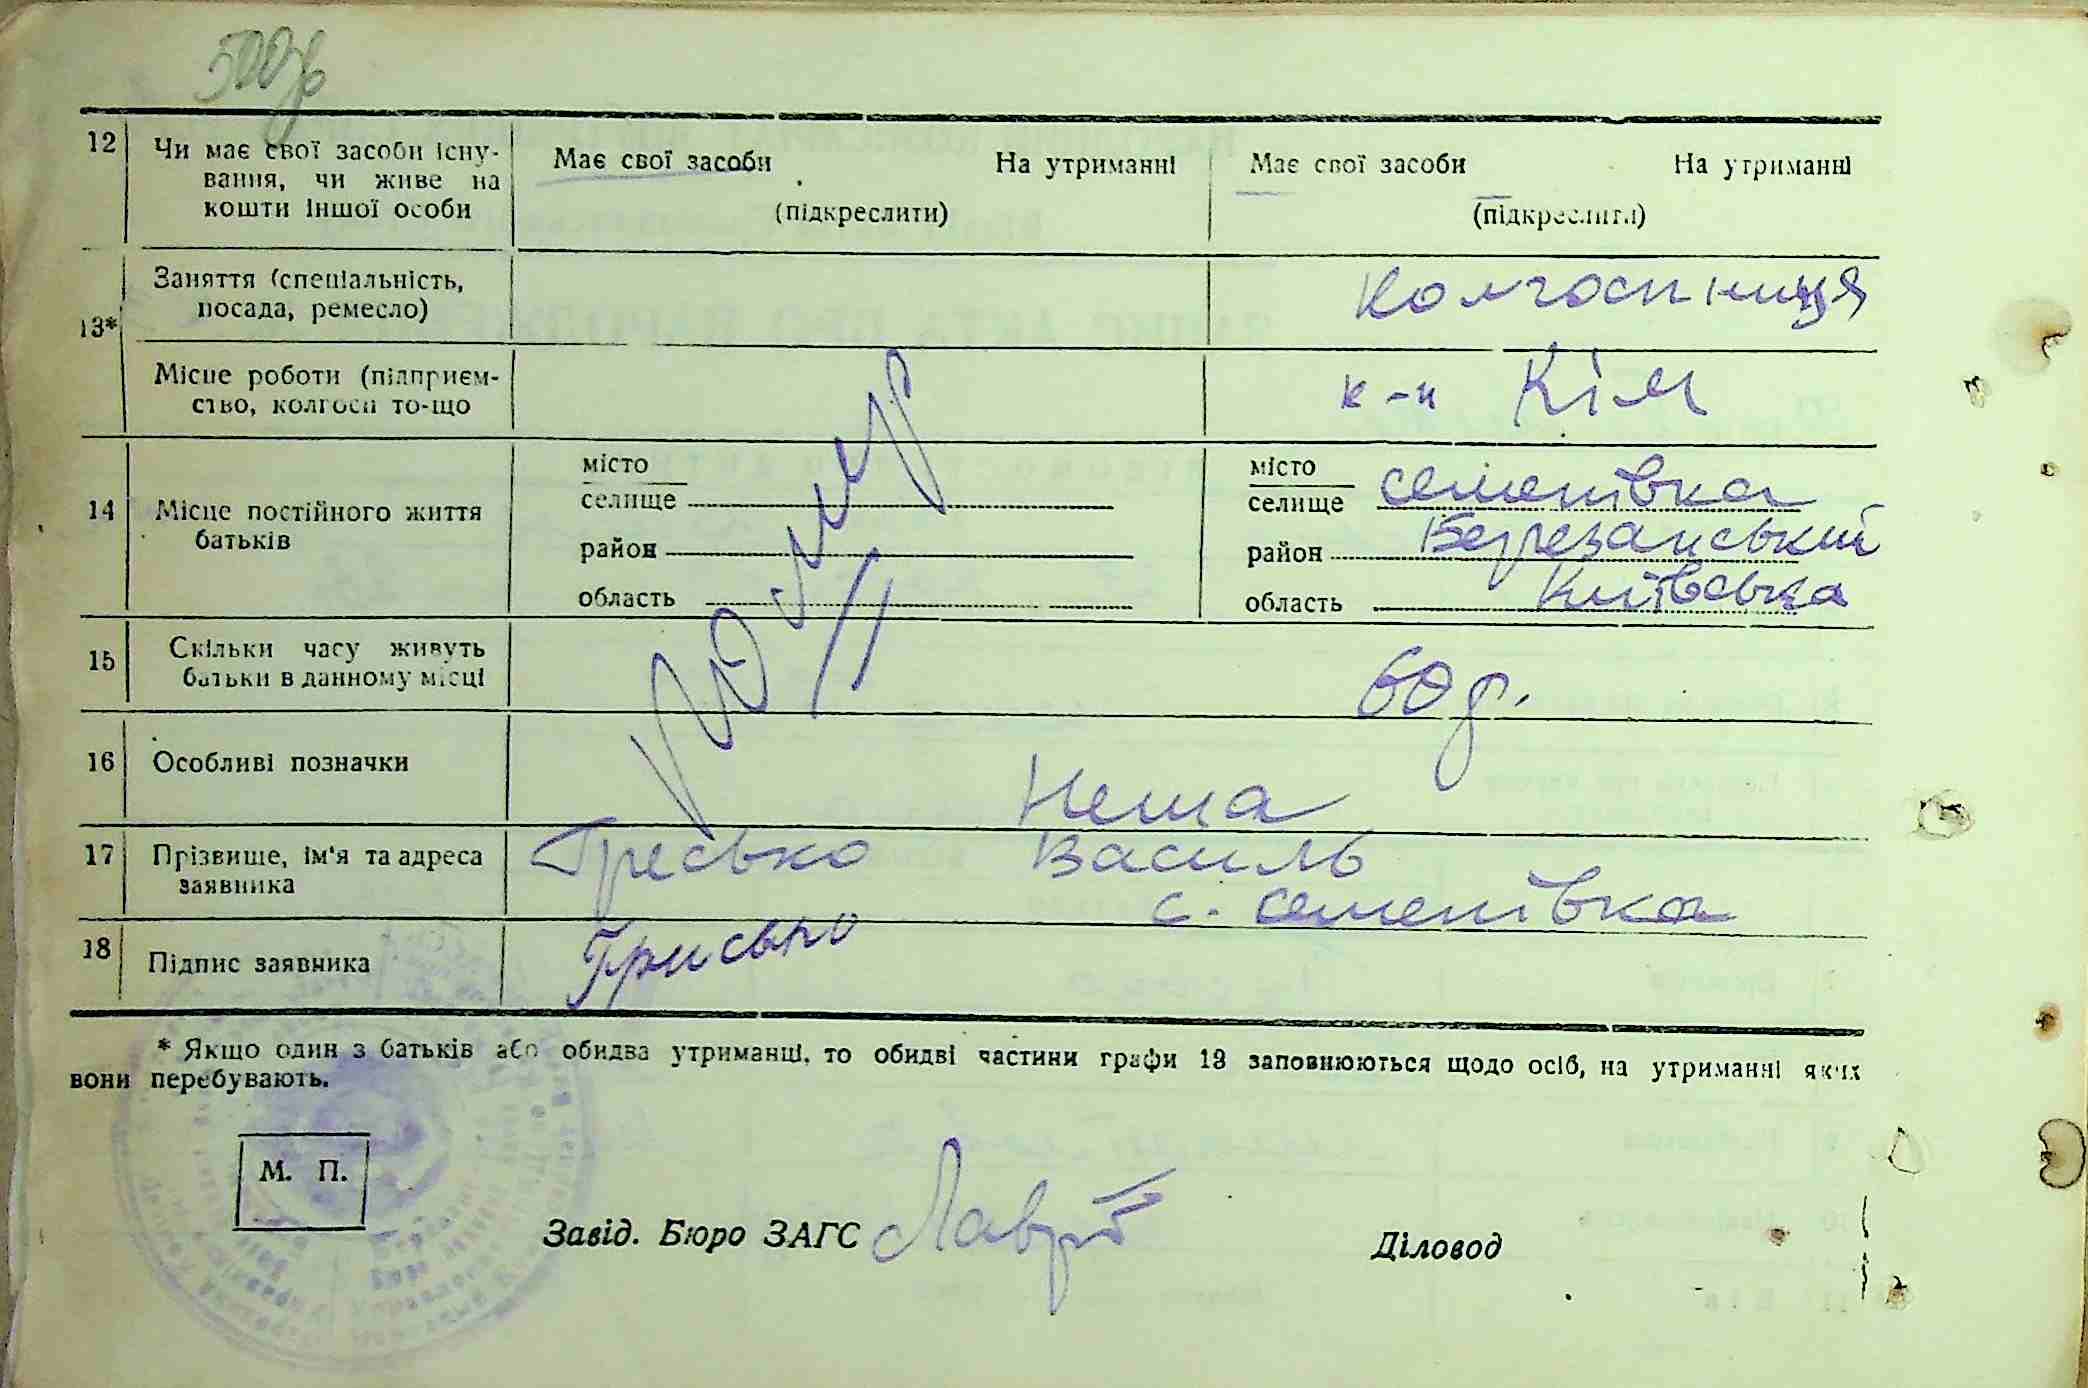 500
12 Чи має свої засоби існу-
вання, чи живе на
кошти іншої особи
Має свої засоби На утриманні
(підкреслити)
Має свої засоби На утриманні
(підкреслити)
13*
Заняття (спеціальність,
посада, ремесло)
Колгоспниця
Місце роботи (підприєм-
ство, колгосп то-що
к-п Кім
14 Місце постійного життя
батьків
місто
селище
район
область
місто
селище Семенівка
район Березанський
область Київська
15 Скільки часу живуть
батьки в данному місці
60 р.
16 Особливі позначки
Нема
17 Прізвище, ім'я та адреса
заявника
Гресько Василь
с. Семенівка
18 Підпис заявника
Грисько
* Якщо один з батьків або обидва утриманці, то обидві частини графи 13 заповнюються щодо осіб, на утриманні яких
вони перебувають.
М. П.
Завід. Бюро ЗАГС
Діловод